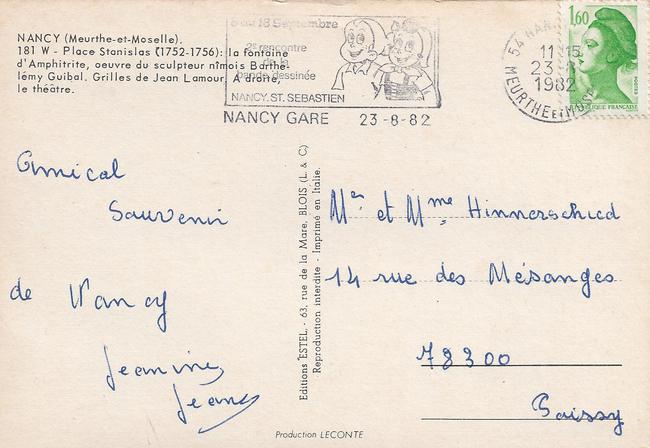 NANCY (Meurthe-et-Moselle).
181 W - Place Stanislas (1752-1756): la fontaine
d'Amphitrite, oeuvre du sculpteur nîmois Barthe-
lémy Guibal. Grilles de Jean Lamour. A droite,
le théâtre.
18 Septembre
2e rencontre
de la
bande dessinée
NANCY. ST. SEBASTIEN
NANCY GARE 23-8-82
54 NAN
11 15
23
1982
MEURTHE ET MOS
1,60
POSTES
RÉPUBLIQUE FRANÇAISE
Amical
Souvenir
de Nancy
Jeanine,
Jean
Editions "ESTEL" - 63, rue de la Mare, BLOIS (L. & C)
Reproduction interdite - Imprimé en Italie.
Mer et Mme Hinnerschied
14 rue des Mésanges
78300
Poissy
Production LECONTE